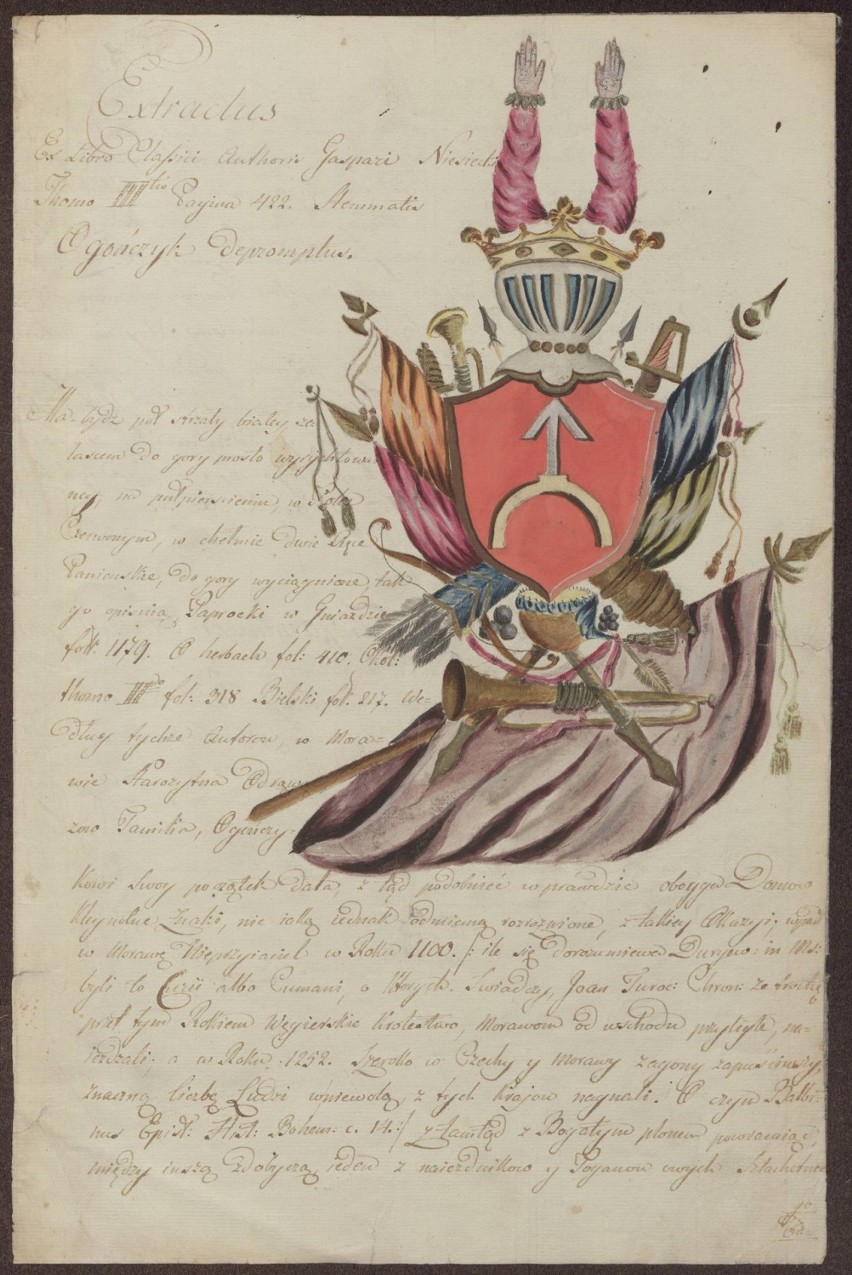 Extractus
Ex Libro Classici Authoris Gaspari Niesiecki
Thomo III tio Pagina 422. Stemmatis
Ogończyk Depromptus.
Ma bydź puł strzały białey że
lascem do gory prosto wyrychtowa
ney, na pułpierscieniu, w Polu
Czerwonym, w chełmie dwie Ręce
Panienskie, do gory wyciągnione, tak
go opisuią, Paprocki w Gniazdzie
fol: 1179. O herbach fol: 410. Okol:
thomo II do fol: 318 Bielski fol: 217. We-
dług tychże Autorow, w Mora-
wie Starożytna Odrow
Familia, Ogończy-
kowi swoy początek dała, z tąd podobnieć wprawdzie oboyga Domow
Kleynotne Znaki, nie iaką iednak odmianą rozrożnione, z takiey Okazyi; wpadł
w Morawę Nieprzyiaciel w Roku 1100. /: ile się dorozumiewa Duryew: in Ms:
byli to albo Cumani, o ktorych Swiadczy, Joan Turoc: Chron: że trochę
przed tym Rokiem Węgierskie Krolestwo, Morawom od wschodu przyległe, na-
ieżdżali; a w Roku 1252. Szeroko w Czechy y Morawy zagony zapuściwszy,
znaczną liczbę Ludzi wniewolą z tych Kraiow nagnali. O czym Balbi-
nus Epist: Hist: Bohem: c. 14:/ z tamtąd z Bogatym plonem powracaiąc,
między inszą zdobyczą, ieden z naiezdnikow y Poganow owych Szlachetne